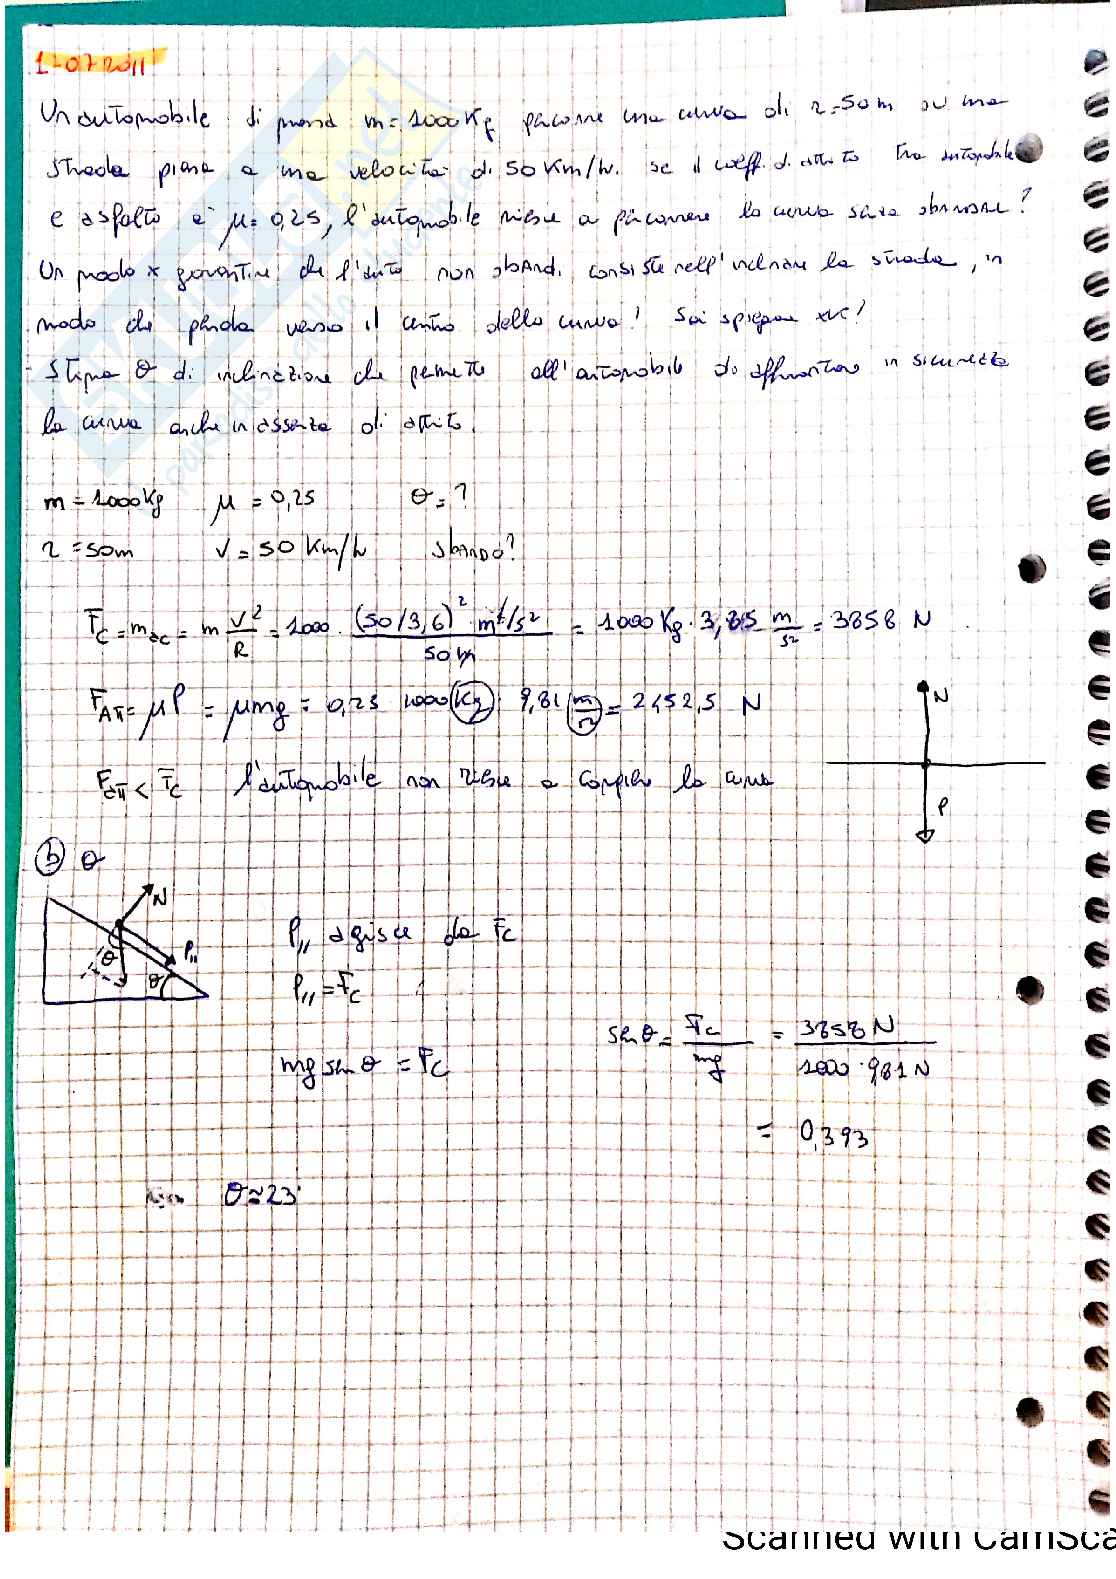 1-07-2011
Un automobile di massa m = 1000 Kg percorre una curva di r = 50 m su una
strada piana a una velocità di 50 Km/h. se il coeff. di attrito tra automobile
e asfalto è μ = 0,25, l'automobile riesce a percorrere la curva senza sbandare?
Un modo x garantire che l'auto non sbandi consiste nell'inclinare la strada, in
modo che penda verso il centro della curva! Sai spiegare xké?
Stima θ di inclinazione che permette all'automobile di affrontare in sicurezza
la curva anche in assenza di attrito.
m = 1000 Kg μ = 0,25 θ = ?
r = 50m v = 50 Km/h SbANDO?
Fc = m ac = m V²/R = 1000 · (50/3,6)² m²/s² / 50 m = 1000 Kg · 3,85 m/s² = 3858 N
FATT = μP = μmg = 0,25 1000 Kg · 9,81 m/s² = 2452,5 N
N
Fatt < Fc l'automobile non riesce a compiere la curva
P
b) θ
N
P// agisce da Fc
θ P// θ
P// = Fc
mg sen θ = Fc
sen θ = Fc/mg = 3858 N / 1000 · 9,81 N
= 0,393
θ ≈ 23°
Scanned with CamSca